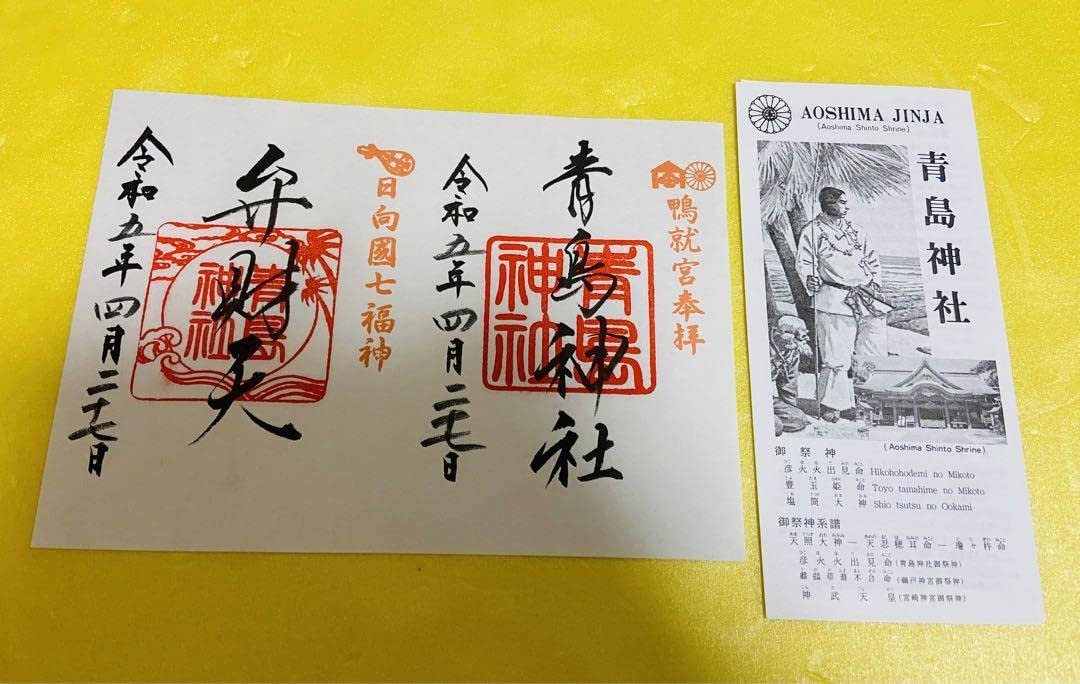 鴨就宮奉拝
青島神社
青島神社
令和五年四月二十七日
日向國七福神
弁財天
青島神社
令和五年四月二十七日
AOSHIMA JINJA
(Aoshima Shinto Shrine)
青島神社
(Aoshima Shinto Shrine)
御祭神
彦火火出見命 Hikohohodemi no Mikoto
豊玉姫命 Toyo tamahime no Mikoto
塩筒大神 Shio tsutsu no Ookami
御祭神系譜
天照大神—天忍穂耳命—瓊々杵命
彦火火出見命(青島神社御祭神)
草葺不合命(鵜戸神宮御祭神)
神武天皇(宮崎神宮御祭神)